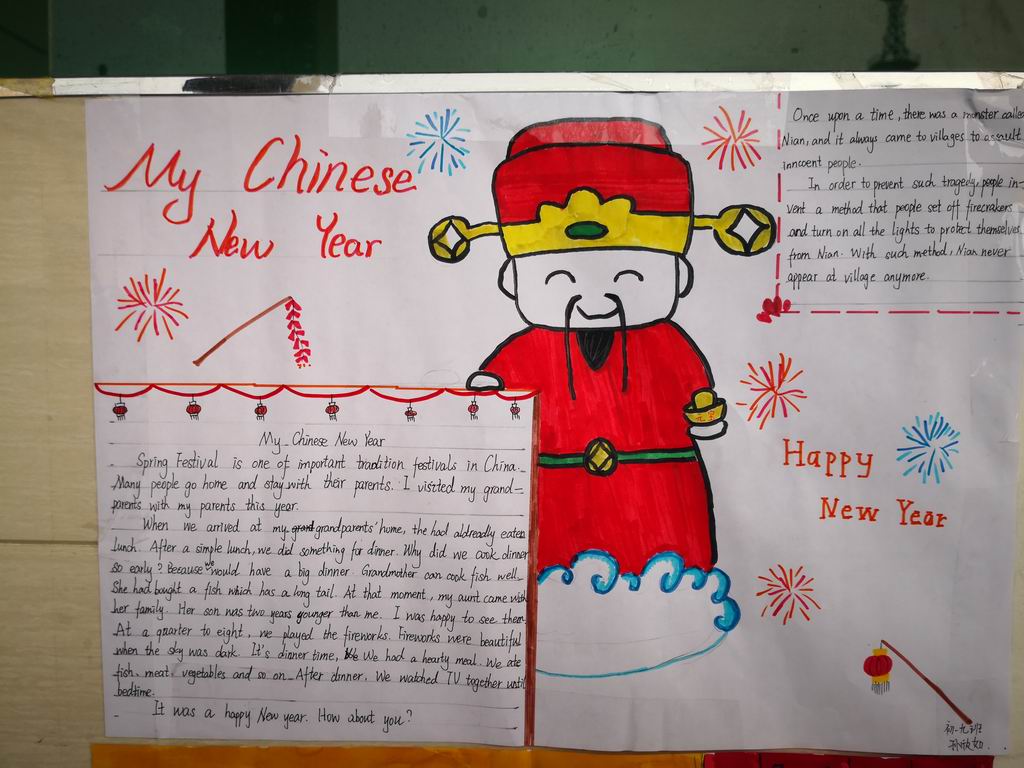 My Chinese
New Year
Once upon a time, there was a monster called
Nian, and it always came to villages to assault
innocent people.
In order to prevent such tragedy, people in-
vent a method that people set off firecrakers
and turn on all the lights to protect themselves
from Nian. With such method, Nian never
appear at village anymore.
My Chinese New Year
Spring Festival is one of important tradition festivals in China.
Many people go home and stay with their parents. I visited my grand-
parents with my parents this year.
When we arrived at my grandparents' home, the had aldreadly eaten
lunch. After a simple lunch, we did something for dinner. Why did we cook dinner
so early? Because we would have a big dinner. Grandmother can cook fish well.
She had bought a fish which has a long tail. At that moment, my aunt came with
her family. Her son was two years younger than me. I was happy to see them.
At a quarter to eight, we played the fireworks. Fireworks were beautiful
when the sky was dark. It's dinner time, We had a hearty meal. We ate
fish, meat, vegetables and so on. After dinner, We watched TV together until
bedtime.
It was a happy New year. How about you?
Happy
New Year
初一九班
孙欣如